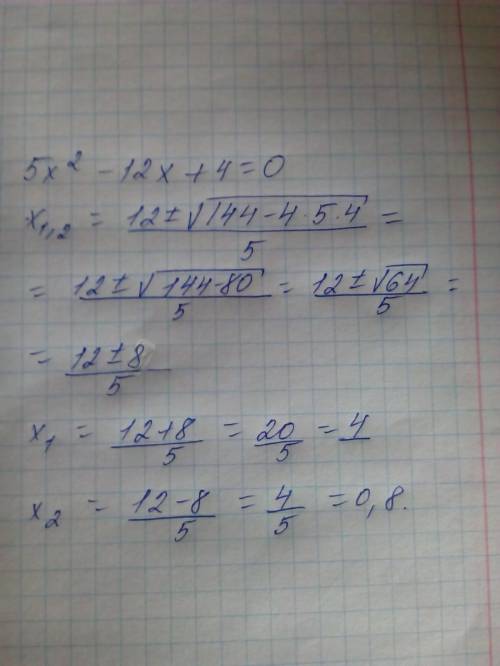 5x² - 12x + 4 = 0
x₁,₂ = (12 ± √(144 - 4·5·4))/5 =
= (12 ± √(144 - 80))/5 = (12 ± √64)/5 =
= (12 ± 8)/5
x₁ = (12 + 8)/5 = 20/5 = 4
x₂ = (12 - 8)/5 = 4/5 = 0,8.